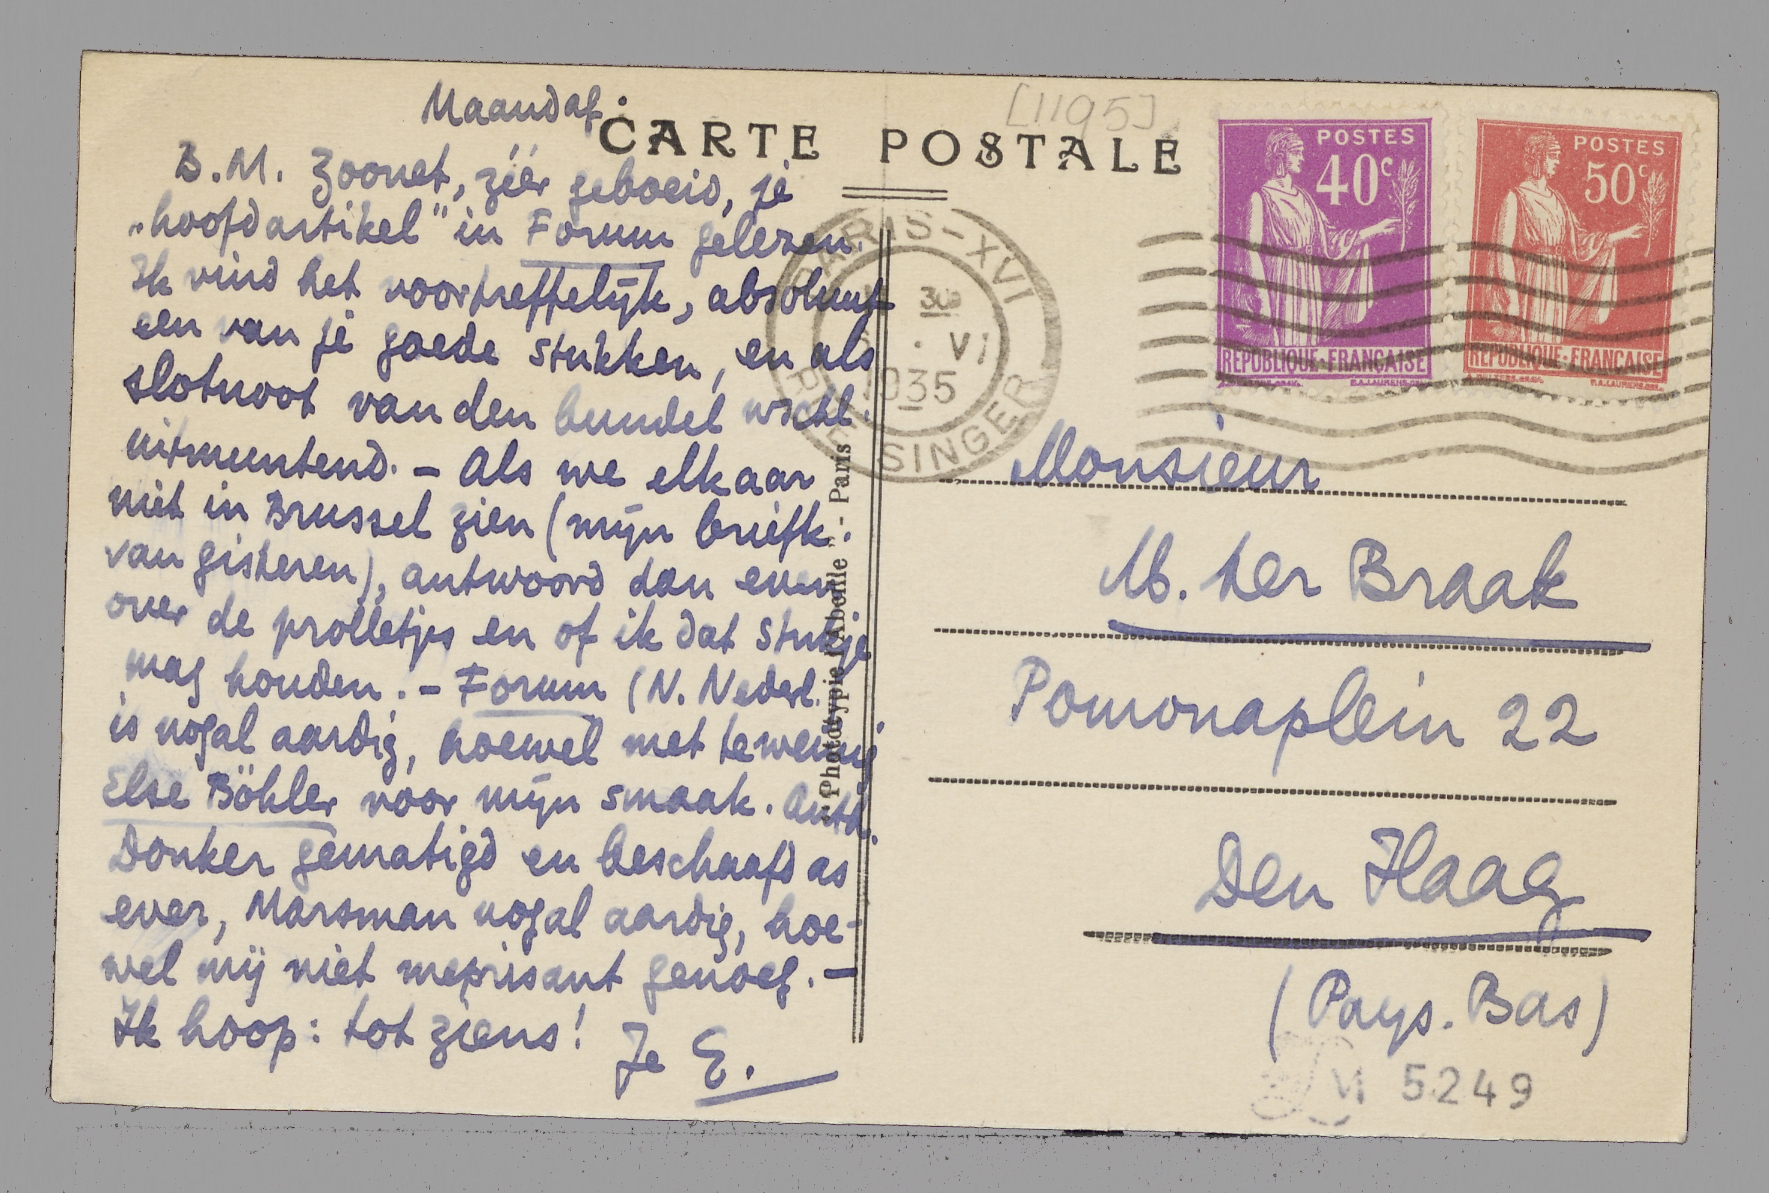 Maandag.
CARTE POSTALE
[1195]
B.M. Zoonet, zéér geboeid, je
„hoofdartikel" in Forum gelezen.
Ik vind het voortreffelijk, absoluut
een van je goede stukken, en als
slotnoot van den bundel wschl.
uitmuntend. — Als we elkaar
niet in Brussel zien (mijn briefk.
van gisteren), antwoord dan even
over de prolletjes en of ik dat stukje
mag houden. — Forum (N. Nederl.
is nogal aardig, hoewel met te weinig
Else Böhler voor mijn smaak. Anth.
Donker gematigd en beschaafd as
ever, Marsman nogal aardig, hoe-
wel mij niet meprisant genoeg. —
Ik hoop: tot ziens!
Je E.
"Phototypie l'Abeille" - Paris
POSTES
40c
REPUBLIQUE·FRANÇAISE
POSTES
50c
REPUBLIQUE·FRANÇAISE
PARIS-XVI
30
VI
1935
SINGER
Monsieur
M. ter Braak
Pomonaplein 22
Den Haag
(Pays-Bas)
LM 5249